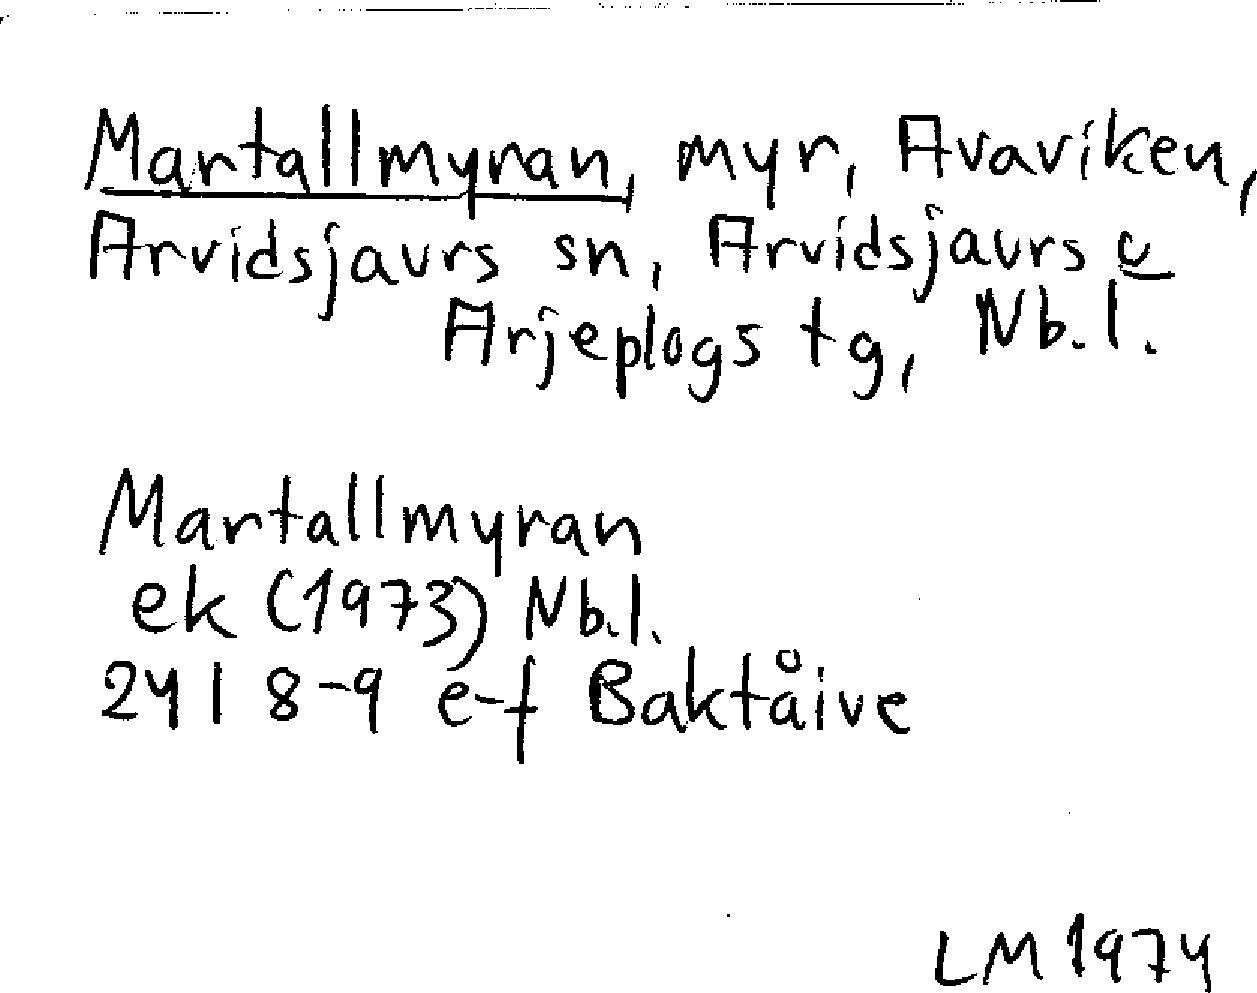 Martallmyran, myr, Avaviken,
Arvidsjaurs sn, Arvidsjaurs o
Arjeplogs tg, Nb.l.
Martallmyran
ek (1973) Nb.l.
24 I 8-9 e-f Baktåive
LM 1974